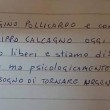 GINO POLLICARDO E SONO
IPPO CALCAGNO OGGI
O LIBERI E STIAMO DI
MA PSICOLOGICAMENTE
SOGNO DI TORNARE